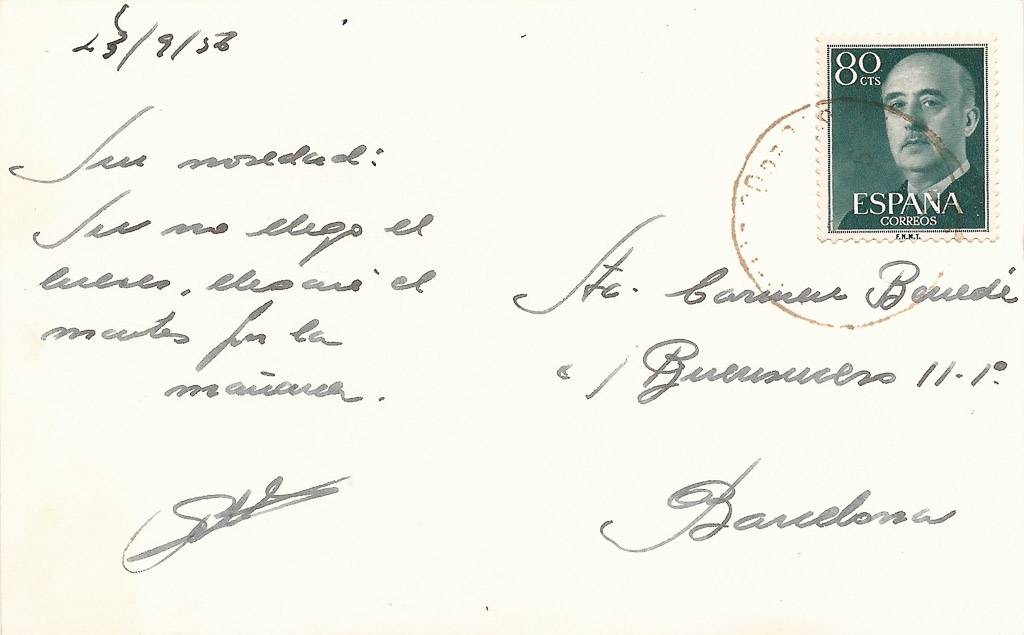 23/9/56
Sin novedad:
Si no llego el
lunes, llegaré el
martes por la
mañana.
80 CTS
ESPAÑA
CORREOS
F.N.M.T.
Sta. Carmen Benedé
c/ Buensuceso 11-1º
Barcelona